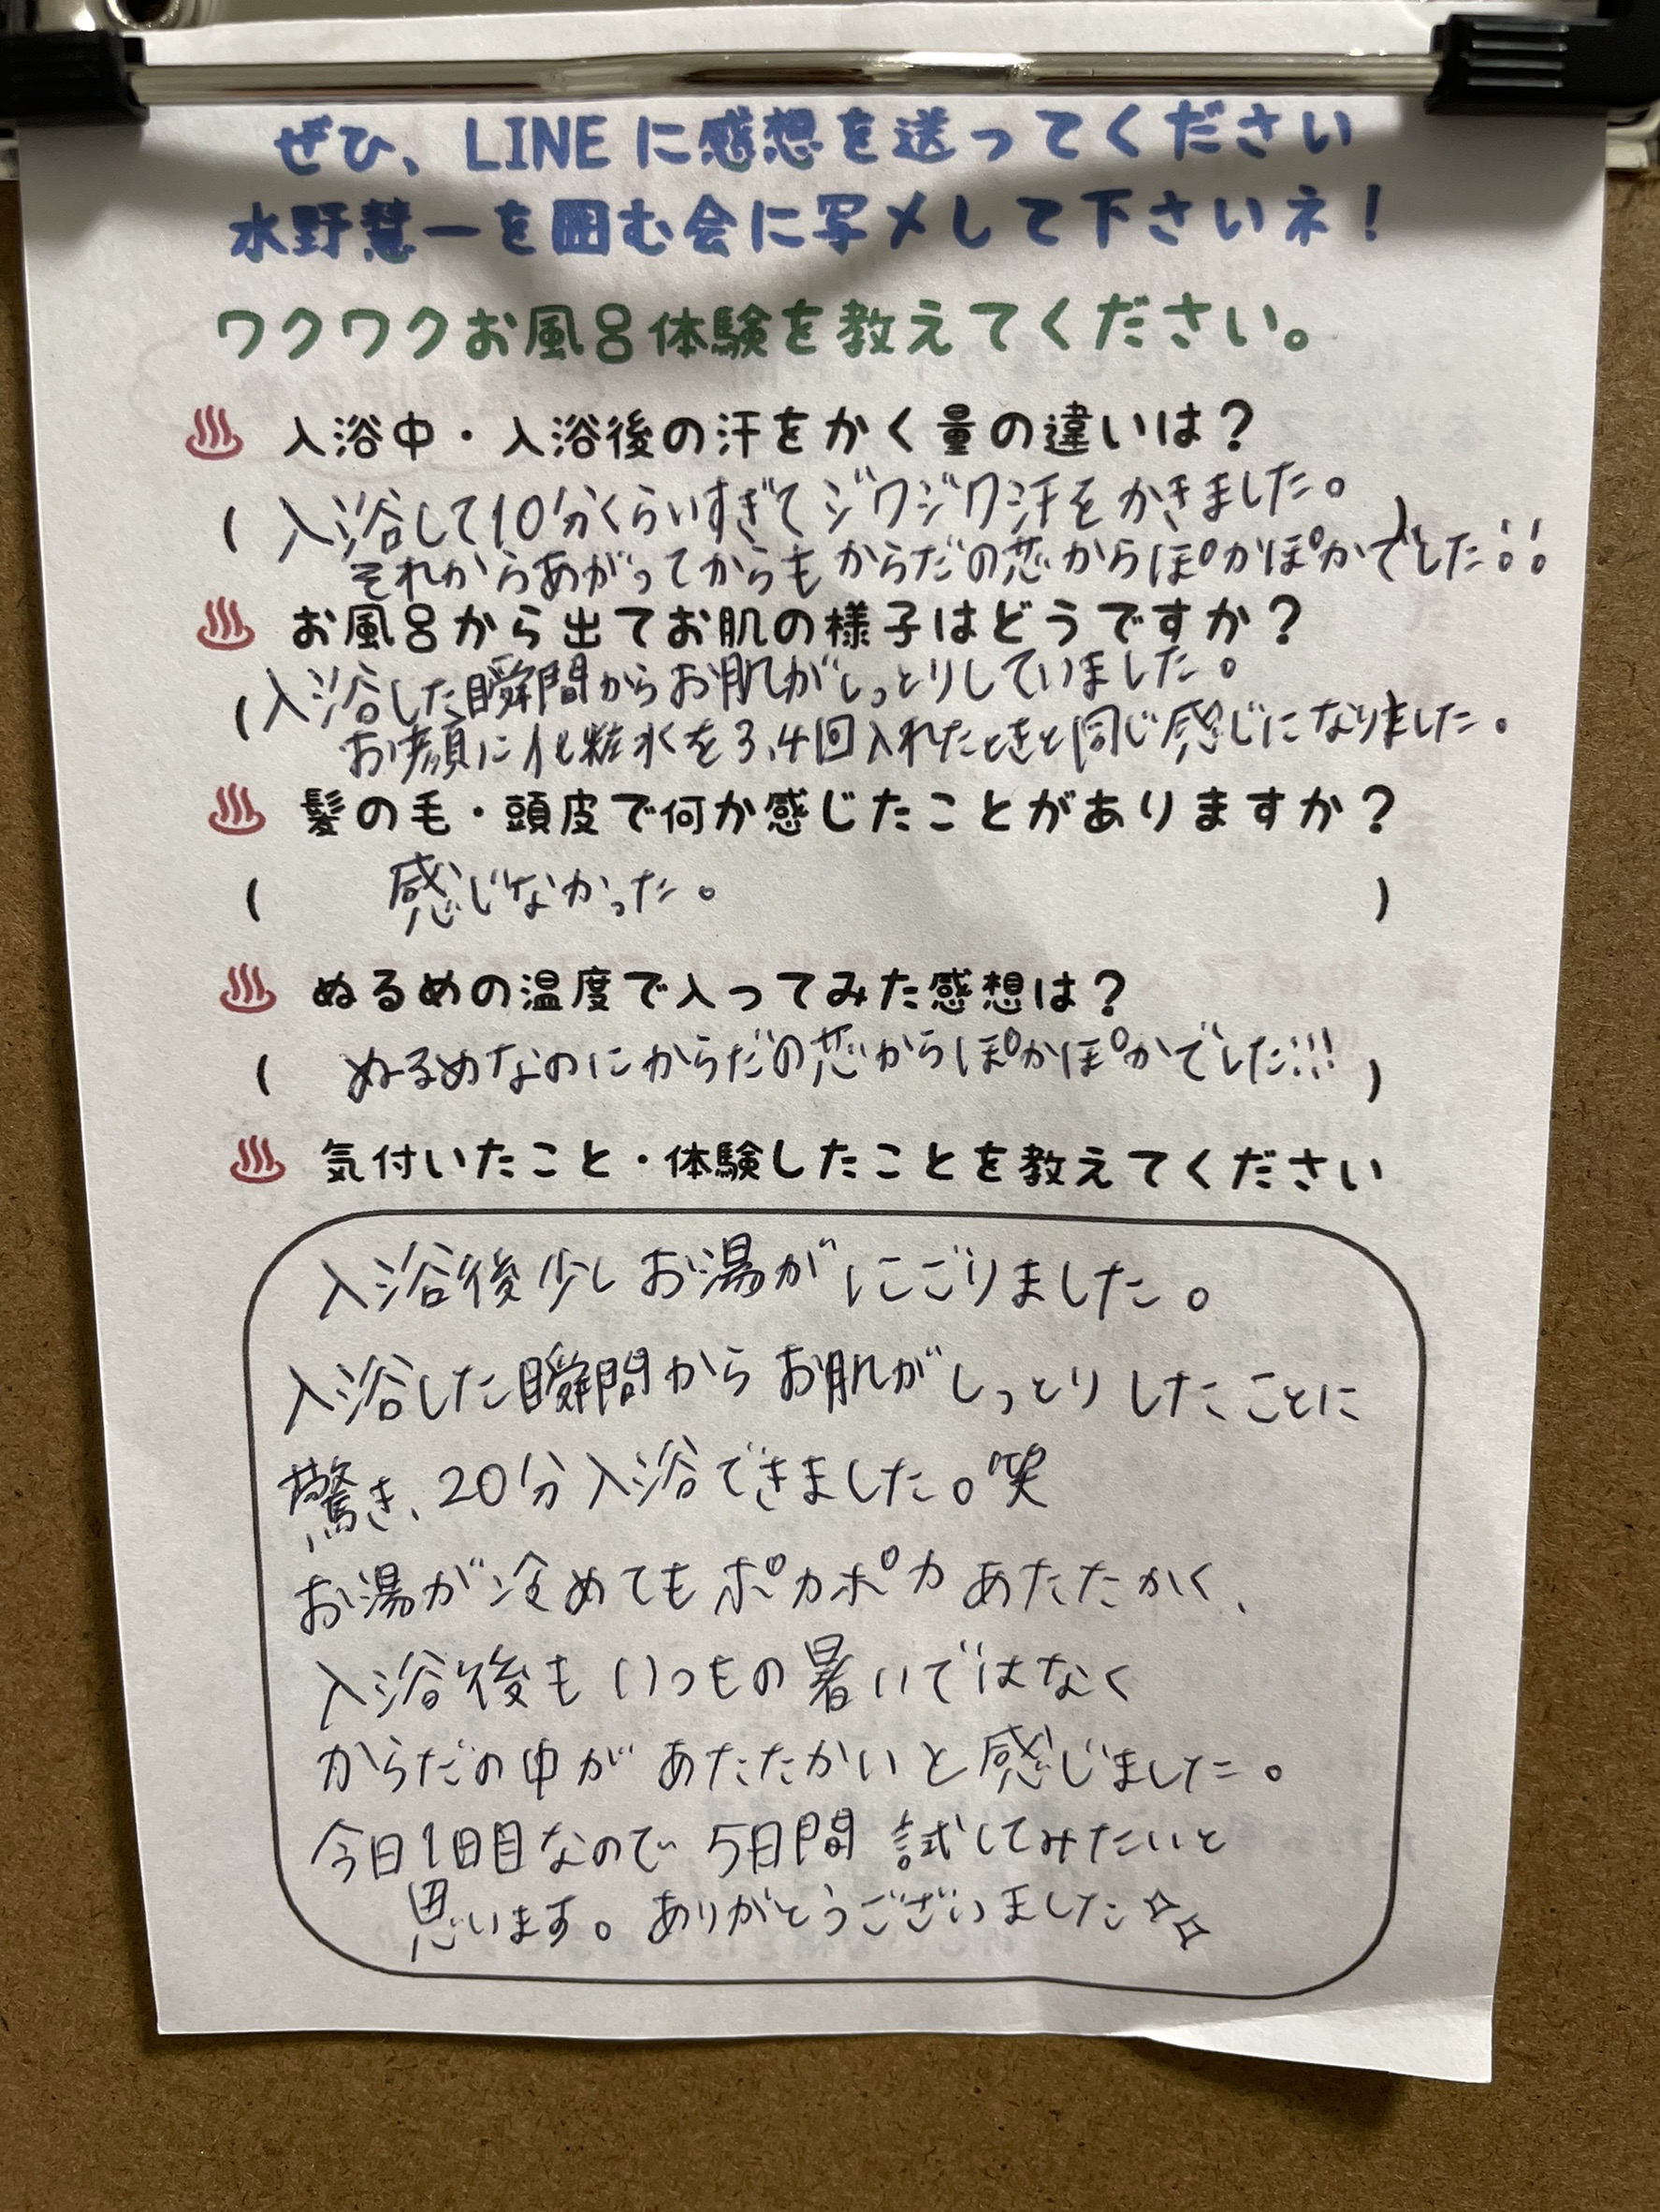 ぜひ、LINEに感想を送ってください
水野慧一を囲む会に写メして下さいネ！
ワクワクお風呂体験を教えてください。
♨ 入浴中・入浴後の汗をかく量の違いは？
( 入浴して10分くらいすぎてジワジワ汗をかきました。 )
それからあがってからもからだの芯からぽかぽかでした!!
♨ お風呂から出てお肌の様子はどうですか？
( 入浴した瞬間からお肌がしっとりしていました。
お顔に化粧水を3,4回入れたときと同じ感じになりました。
♨ 髪の毛・頭皮で何か感じたことがありますか？
( 感じなかった。 )
♨ ぬるめの温度で入ってみた感想は？
( ぬるめなのにからだの芯からぽかぽかでした!!! )
♨ 気付いたこと・体験したことを教えてください
入浴後少しお湯がにごりました。
入浴した瞬間からお肌がしっとりしたことに
驚き、20分入浴できました。笑
お湯が冷めてもポカポカあたたかく、
入浴後もいつもの暑いではなく
からだの中があたたかいと感じました。
今日1日目なので5日間試してみたいと
思います。ありがとうございました✧✧